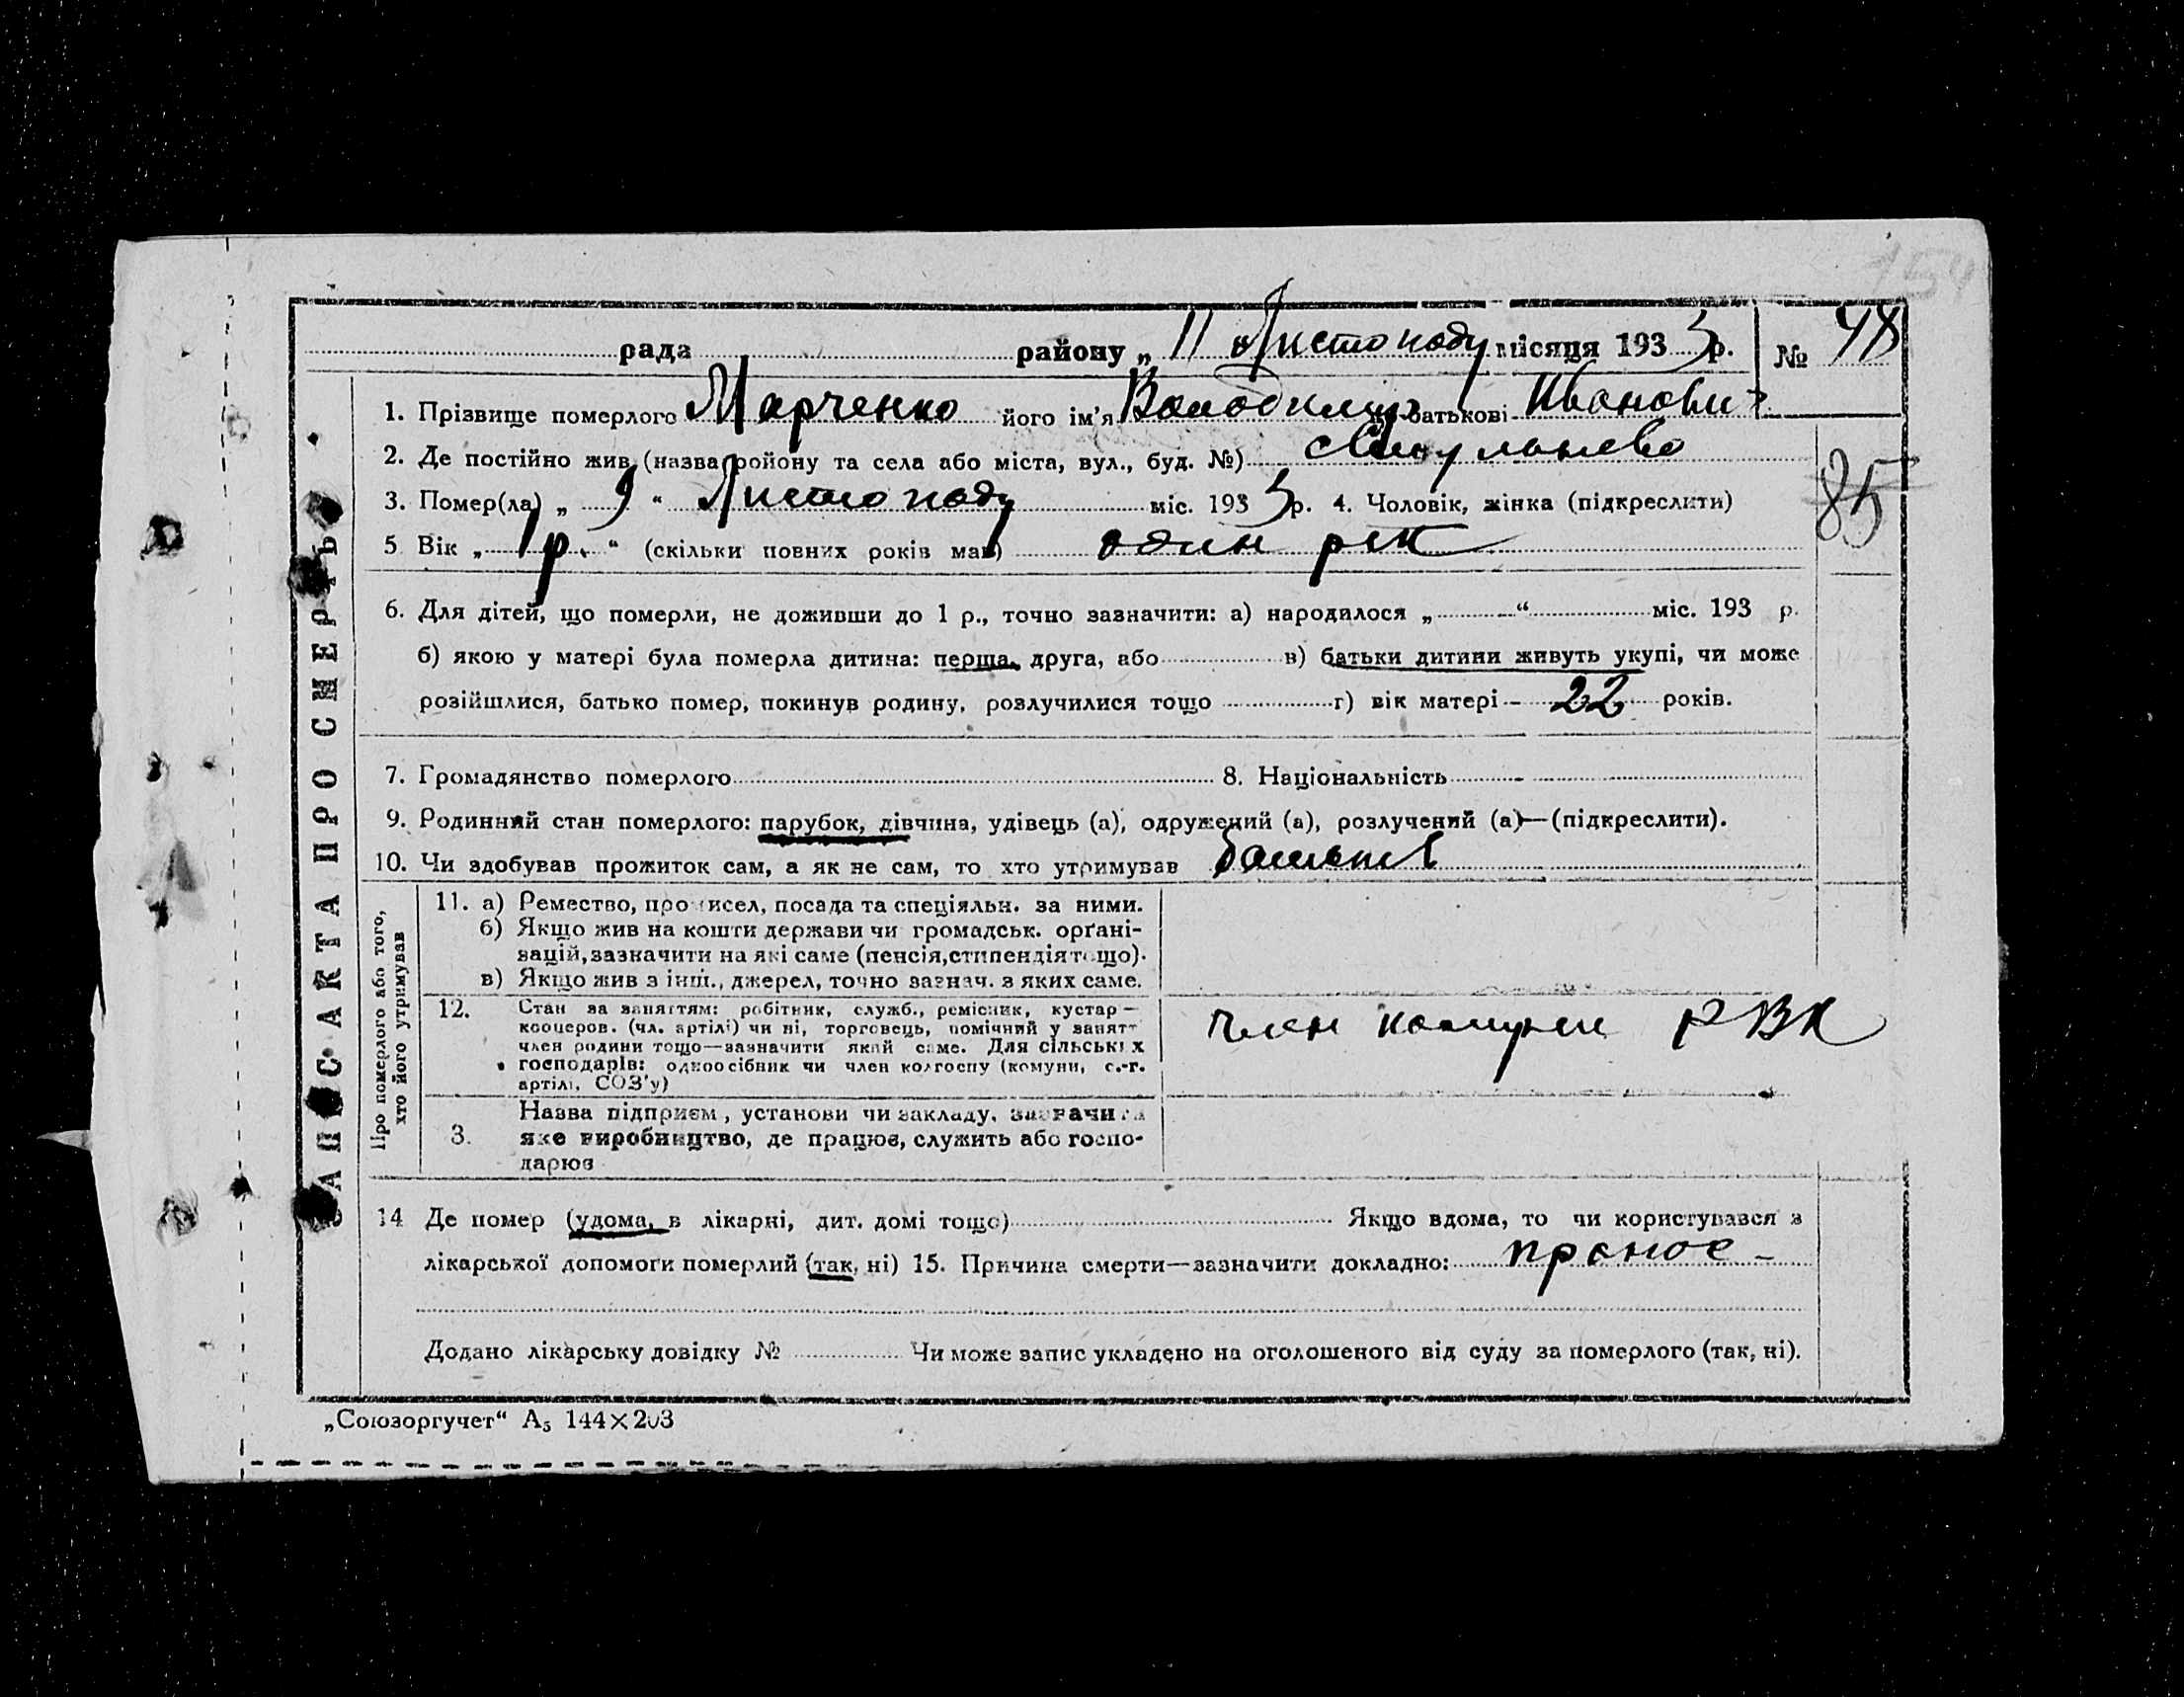 рада району „ 11 " Листопаду місяця 1933 р. № 48
1. Прізвище померлого Марченко його ім'я Володимир батькові Иванович
2. Де постійно жив (назва району та села або міста, вул., буд. №)
3. Помер(ла) „ 9 “ Листопаду міс. 1933 р. 4. Чоловік, жінка (підкреслити)
85
5 Вік „ 1 р. “ (скільки повних років мав) один рік
6. Для дітей, що померли, не доживши до 1 р., точно зазначити: а) народилося „ “ міс. 193 р.
б) якою у матері була померла дитина: перша, друга, або в) батьки дитини живуть укупі, чи може
розійшлися, батько помер, покинув родину, розлучилися тощо г) вік матері - 22 років.
7. Громадянство померлого 8. Національність
9. Родинний стан померлого: парубок, дівчина, удівець (а), одружений (а), розлучений (а)—(підкреслити).
10. Чи здобував прожиток сам, а як не сам, то хто утримував
ЗАПИС АКТА ПРО СМЕРТЬ
Про померлого або того,
хто його утримував
11. а) Ремество, промисел, посада та спеціяльн. за ними.
б) Якщо жив на кошти держави чи громадськ. орґані-
зацій, зазначити на які саме (пенсія, стипендія тощо).
в) Якщо жив з інш., джерел, точно зазнач. з яких саме.
12. Стан за заняттям: робітник, служб., ремісник, кустар—
кооперов. (чл. артілі) чи ні, торговець, помічний у занятт
член родини тощо—зазначити який саме. Для сільських
господарів: одноосібник чи член колгоспу (комуни, с.-г.
артілі, СОЗ'у)
Член комуни РВК
3. Назва підприєм., установи чи закладу, зазначити
яке виробництво, де працює, служить або госпо-
дарює
14 Де помер (удома, в лікарні, дит. домі тощо) Якщо вдома, то чи користувався з
лікарської допомоги померлий (так, ні) 15. Причина смерти—зазначити докладно: пронос -
Додано лікарську довідку № Чи може запис укладено на оголошеного від суду за померлого (так, ні).
„Союзоргучет“ А5 144×203